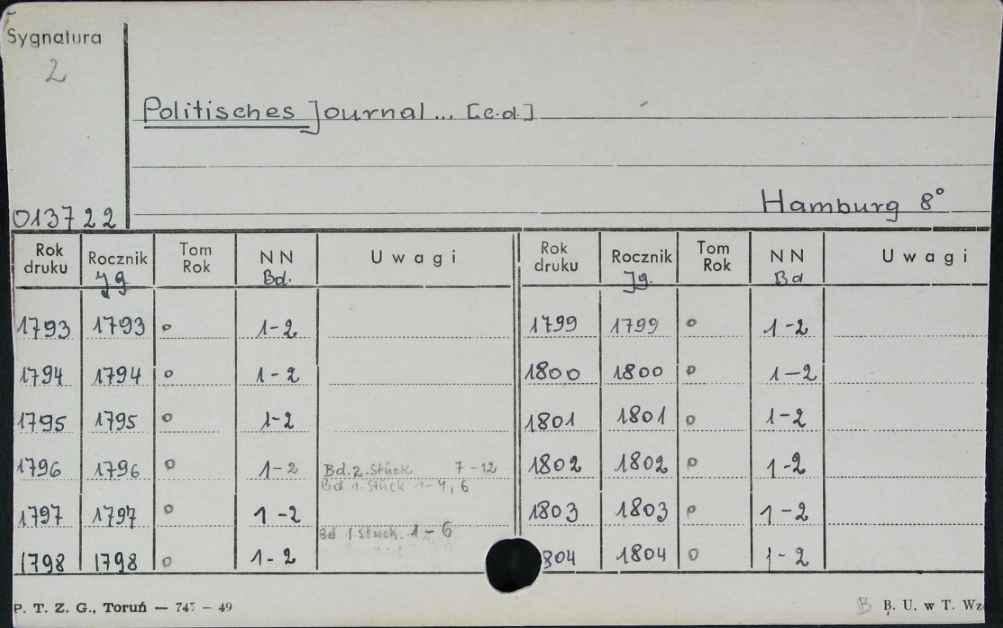 Sygnatura
2
Politisches Journal... [c.d.]
013722
Hamburg 8°
Rok druku Rocznik Jg. Tom Rok NN Bd. Uwagi Rok druku Rocznik Jg. Tom Rok NN Bd Uwagi
1793 1793 o 1-2 1799 1799 o 1-2
1794 1794 o 1-2 1800 1800 o 1-2
1795 1795 o 1-2 1801 1801 o 1-2
1796 1796 o 1-2 Bd. 2. Stück 7-12 1802 1802 o 1-2
Bd 1. Stück 1-4, 6
1797 1797 o 1-2 1803 1803 o 1-2
Bd 1. Stück. 1-6
1798 1798 o 1-2 804 1804 o 1-2
P. T. Z. G., Toruń — 747 — 49
B B. U. w T. Wz